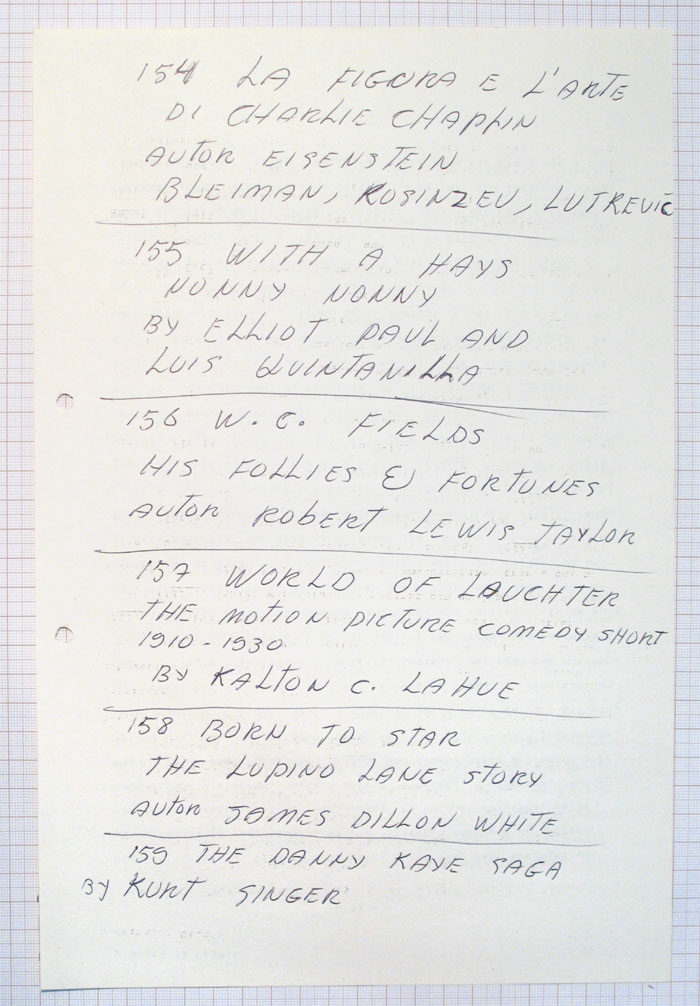 154 LA FIGURA E L'ARTE
DI CHARLIE CHAPLIN
AUTOR EISENSTEIN
BLEIMAN, KOSINZEV, LUTKEVIC
155 WITH A HAYS
NONNY NONNY
BY ELLIOT PAUL AND
LUIS QUINTANILLA
156 W. C. FIELDS
HIS FOLLIES & FORTUNES
AUTOR ROBERT LEWIS TAYLOR
157 WORLD OF LAUCHTER
THE MOTION PICTURE COMEDY SHORT
1910-1930
BY KALTON C. LAHUE
158 BORN TO STAR
THE LUPINO LANE STORY
AUTOR JAMES DILLON WHITE
159 THE DANNY KAYE SAGA
BY KURT SINGER